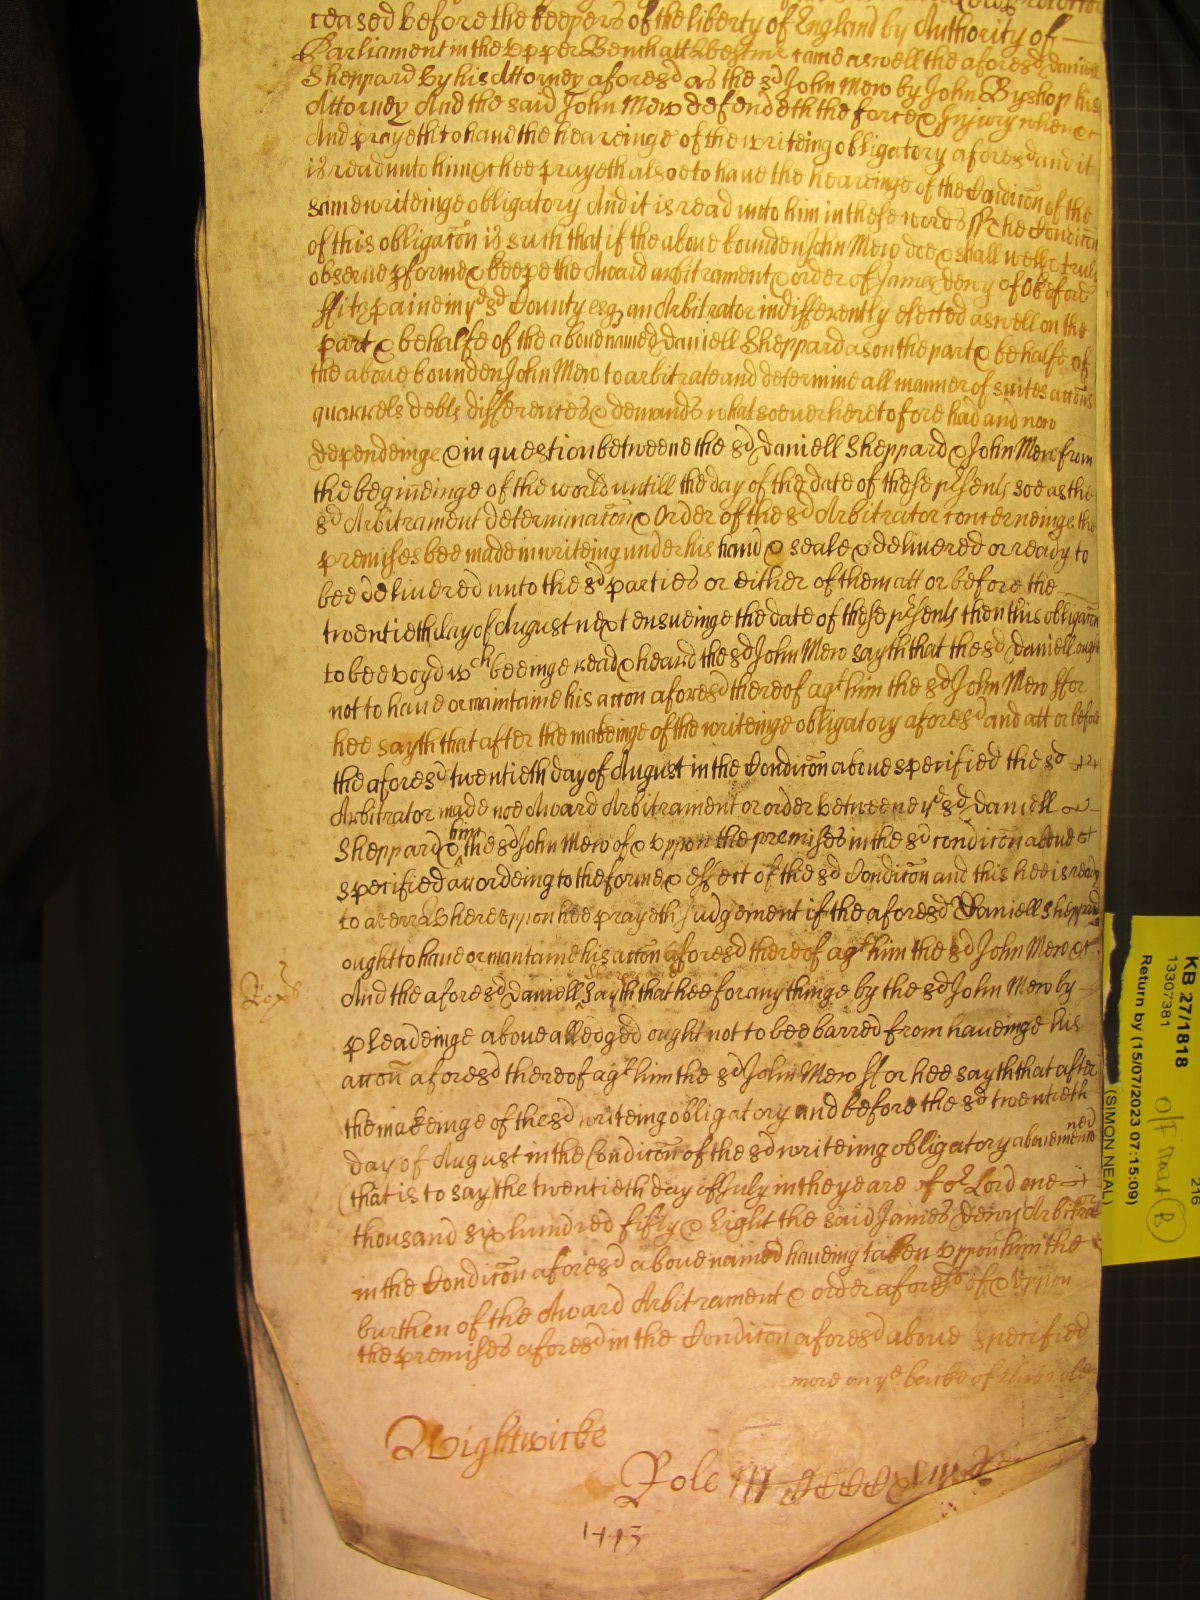 ceased before the keepers of the liberty of England by Authority of
Parliament in the Upper Bench att Westmr came aswell the aforesd daniell
Sheppard by his Attorney aforesd as the sd John Mew by John Byshop his
Attorney And the said John Mew defendeth the force & Injury when &c
And prayeth to have the heareinge of the writeing obligatory aforesd and it
is read unto him &c hee prayeth alsoe to have the heareinge of the Condicōn of the
same writeinge obligatory And it is read unto him in these words ss The Condicōn
of this obligacōn is such that if the above bounden John Mew doe & shall well & truly
observe pforme & keepe the Award arbitrament & order of James dewy of Okeford
ffitzpaine in yd sd County esq an Arbitrator indifferently elected aswell on the
part & behalfe of the above named daniell Sheppard as on the part & behalfe of
the above bounden John Mew to arbitrate and determine all manner of suites accōns
quarrels debts differences & demands whatsoever heretofore had and now
dependeinge & in question betweene the sd daniell Sheppard & John Mew from
the begineinge of the world untill the day of the date of these psents soe as the
sd Arbitrament determinacōn & Order of the sd Arbitrator concerneinge the
premises bee made in writeing under his hand & seale & delivered or ready to
bee delivered unto the sd parties or either of them att or before the
twentieth day of August next ensueinge the date of these psents then this obligacōn
to bee voyd wch beeinge read & heard the sd John Mew sayth that the sd daniell ought
not to have or maintaine his accon aforesd thereof agt him the sd John Mew ffor
hee sayth that after the makeinge of the writeinge obligatory aforesd and att or before
the aforesd twentieth day of August in the Condicōn above specified the sd
Arbitrator made noe Award Arbitrament or order betweene yd sd daniell
Sheppard & him the sd John Mew of & uppon the premises in the sd condicōn above
specified accordeing to the forme & effect of the sd Condicōn and this hee is ready
to averr Whereuppon hee prayeth Judgement if the aforesd Daniell Sheppard
ought to have or mantaine his accōn aforesd thereof agt him the sd John Mew &c
And the aforesd Daniell Sheppard sayth that hee for any thinge by the sd John Mew by
pleadeinge above alledged ought not to bee barred from haveinge his
accōn aforesd thereof agt him the sd John Mew ffor hee sayth that after
the makeinge of the sd writeing obligatory and before the sd twentieth
day of August in the Condicōn of the sd writeing obligatory abovementioned
(that is to say) the twentieth day of July in the yeare of or Lord one
thousand six hundred fifty & Eight the said James dewy Arbitrator
in the Condicōn aforesd above named haveing taken uppon him the
burthen of the Award Arbitrament & order aforesd of & uppon
the premises aforesd in the Condicōn aforesd above specified
more on ye backe of this rolle
Wightwicke
Role
1443
KB 27/1818
13307381
Return by (15/07/2023 07:15:09)
(SIMON NEAL)
216